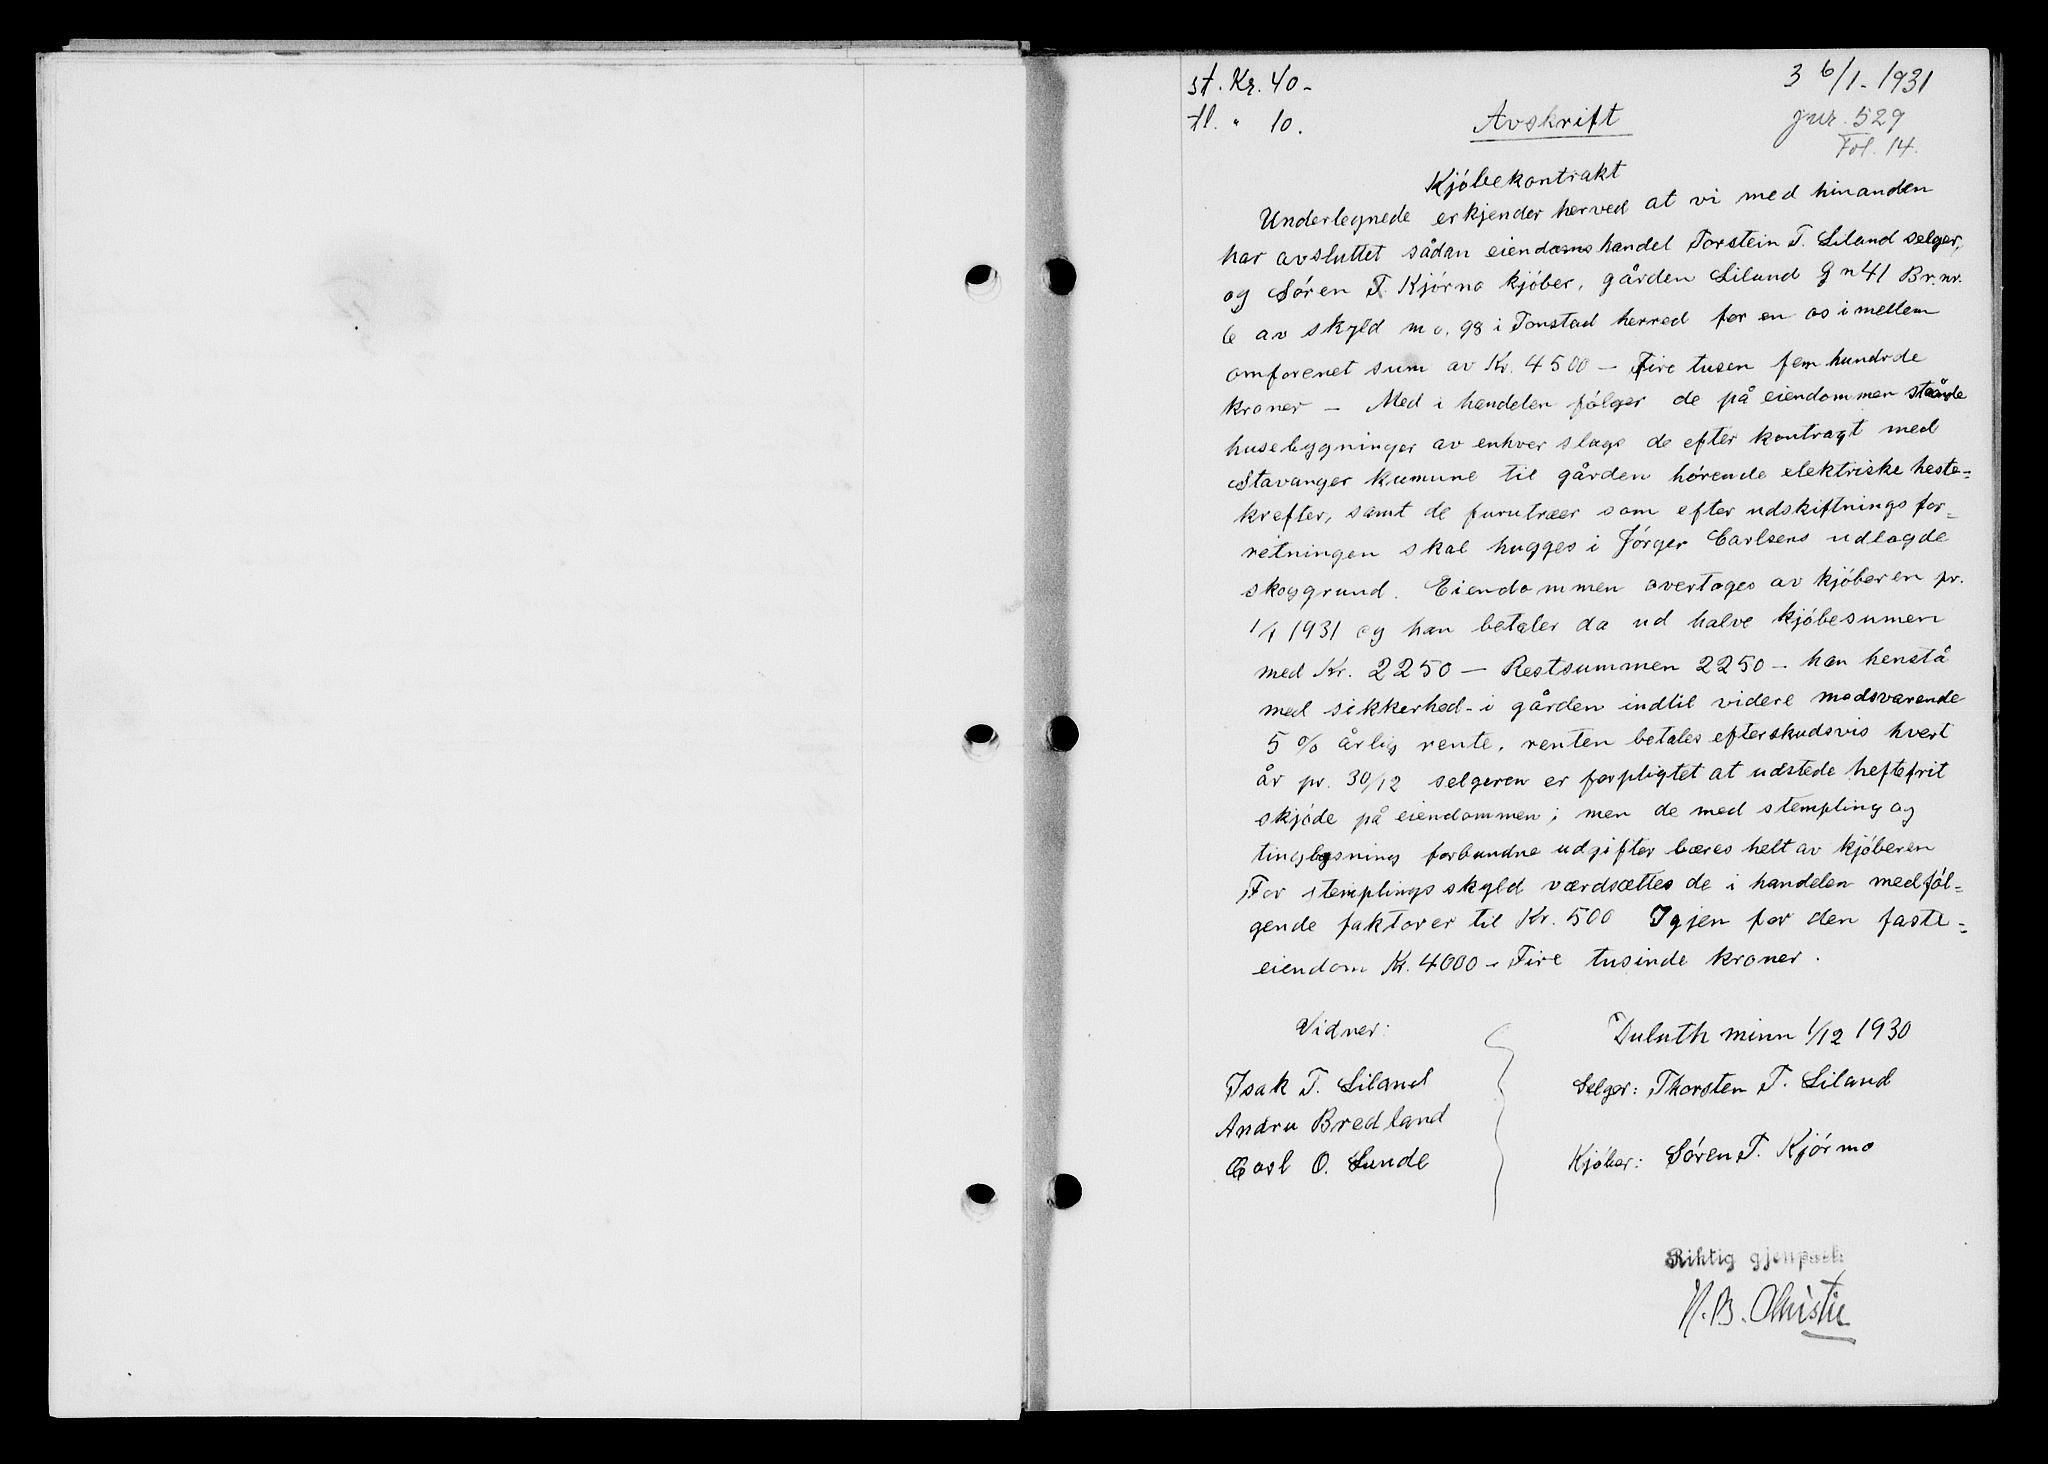 st. Kr. 40-
tl. " 10.
3 6/1-1931
jur. 529
Fol. 14.
Avskrift
Kjöbekontrakt
Undertegnede erkjender herved at vi med hinanden
har avsluttet sådan eiendomshandel Torstein T. Liland selger,
og Sören T. Kjörmo kjöber, gården Liland G n 41 Br.nr.
6 av skyld m o. 98 i Tonstad herred for en os imellem
omforenet sum av Kr. 4500 - Fire tusen fem hundrde
kroner - Med i handelen fölger de på eiendommen stående
husebygninger av enhver slags de efter kontragt med
Stavanger kumune til gården hörende elektriske heste=
krefter, samt de furutræer som efter udskiftningsfor=
retningen skal hugges i Jörger Carlsens udlagde
skoggrund. Eiendommen overtages av kjöberen pr.
1/1 1931 og han betaler da ud halve kjöbesumen
med Kr. 2250 - Restsummen 2250 - kan henstå
med sikkerhed - i gården indtil videre modsvarende
5 % årlig rente, renten betales efterskudsvis hvert
år pr. 30/12 selgeren er forpligtet at udstede heftefrit
skjöde på eiendommen; men de med stempling og
tinglysning forbundne udgifter bæres helt av kjöberen
For stemplings skyld værdsættes de i handelen medföl=
gende faktorer til Kr. 500 Igjen for den faste=
eiendom Kr. 4000 - Fire tusinde kroner.
Vidner:
Isak T. Liland
Andru Bredland
Carl O. Sunde
Duluth minn 1/12 1930
Selger: Thorsten T. Liland
Kjöber: Sören T. Kjörmo
Riktig gjenpart:
H. B. Christie